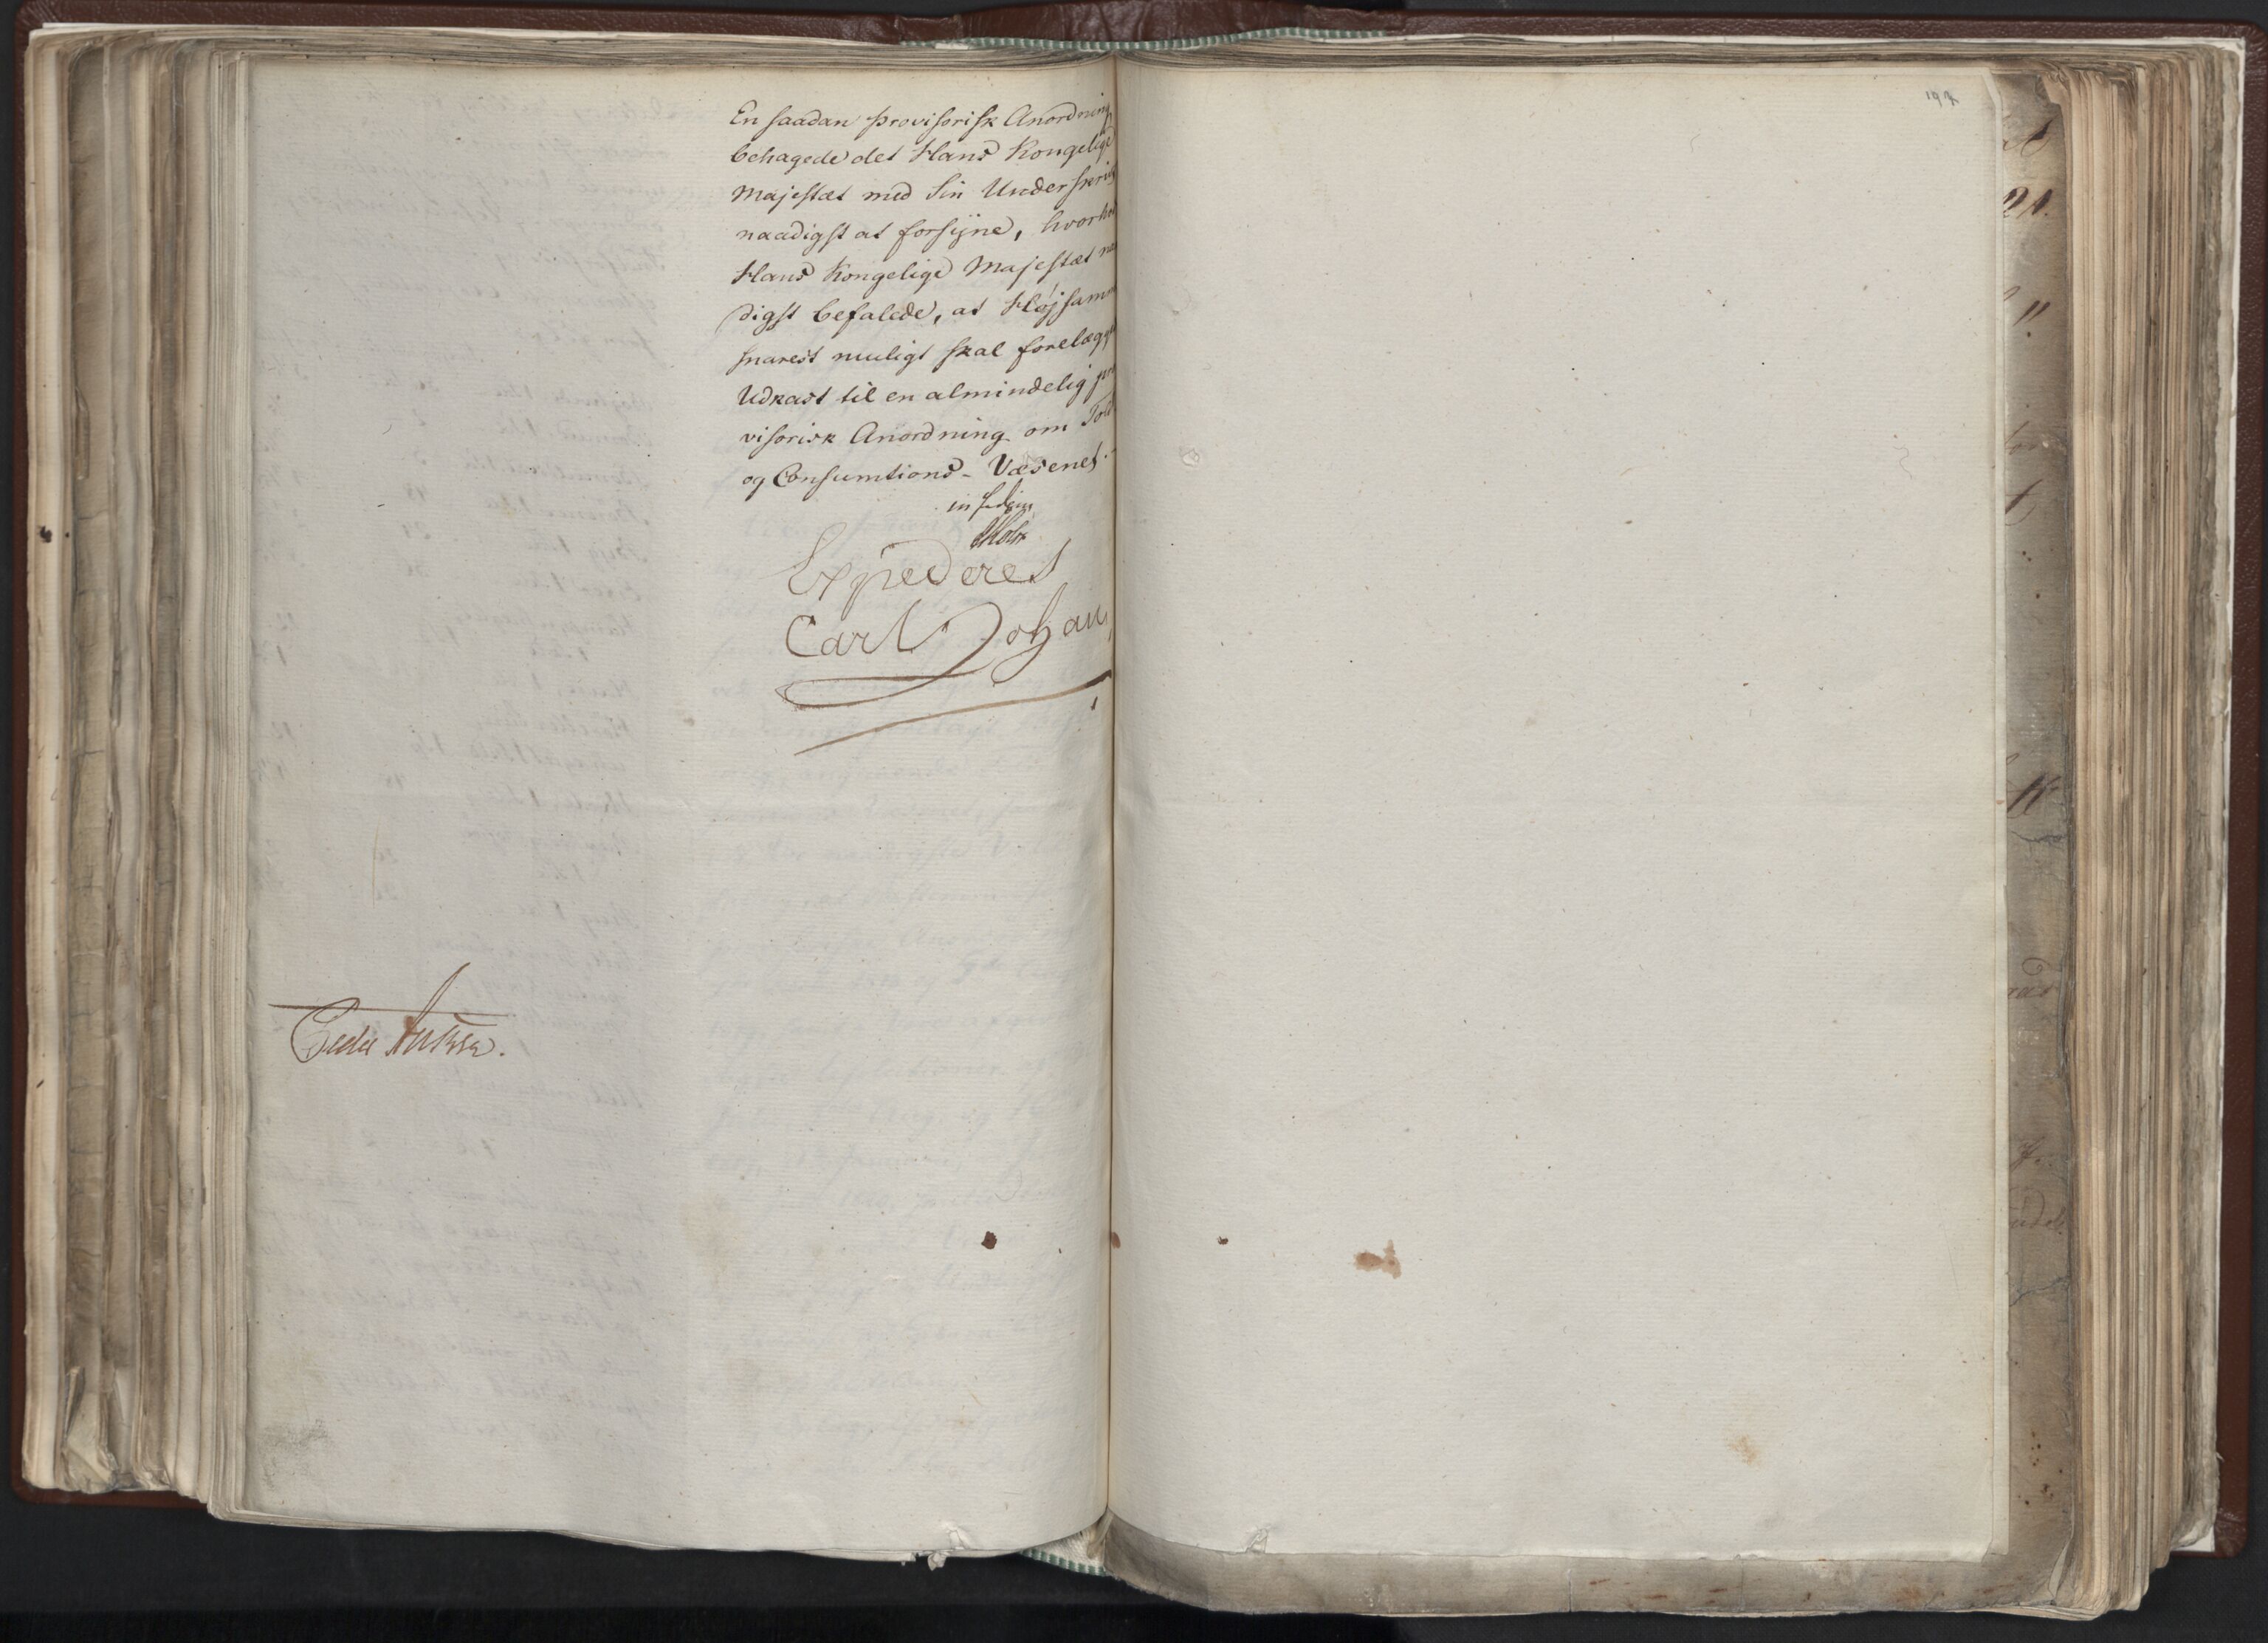 En saadan provisorisk Anordning
behagede det Hans Kongelige
Majestæt med Sin Underskrift
naadigst at forsijne, hvorhos
Hans Kongelige Majestæt naa
digst befalede, at Højsamme
snarest muligt skal forelægges
Udkast til en almindelig pro
visorisk Anordning om Told
og Consumtions-Væsenet.
in fidem
Holst
Expederes
Carl Johan
192